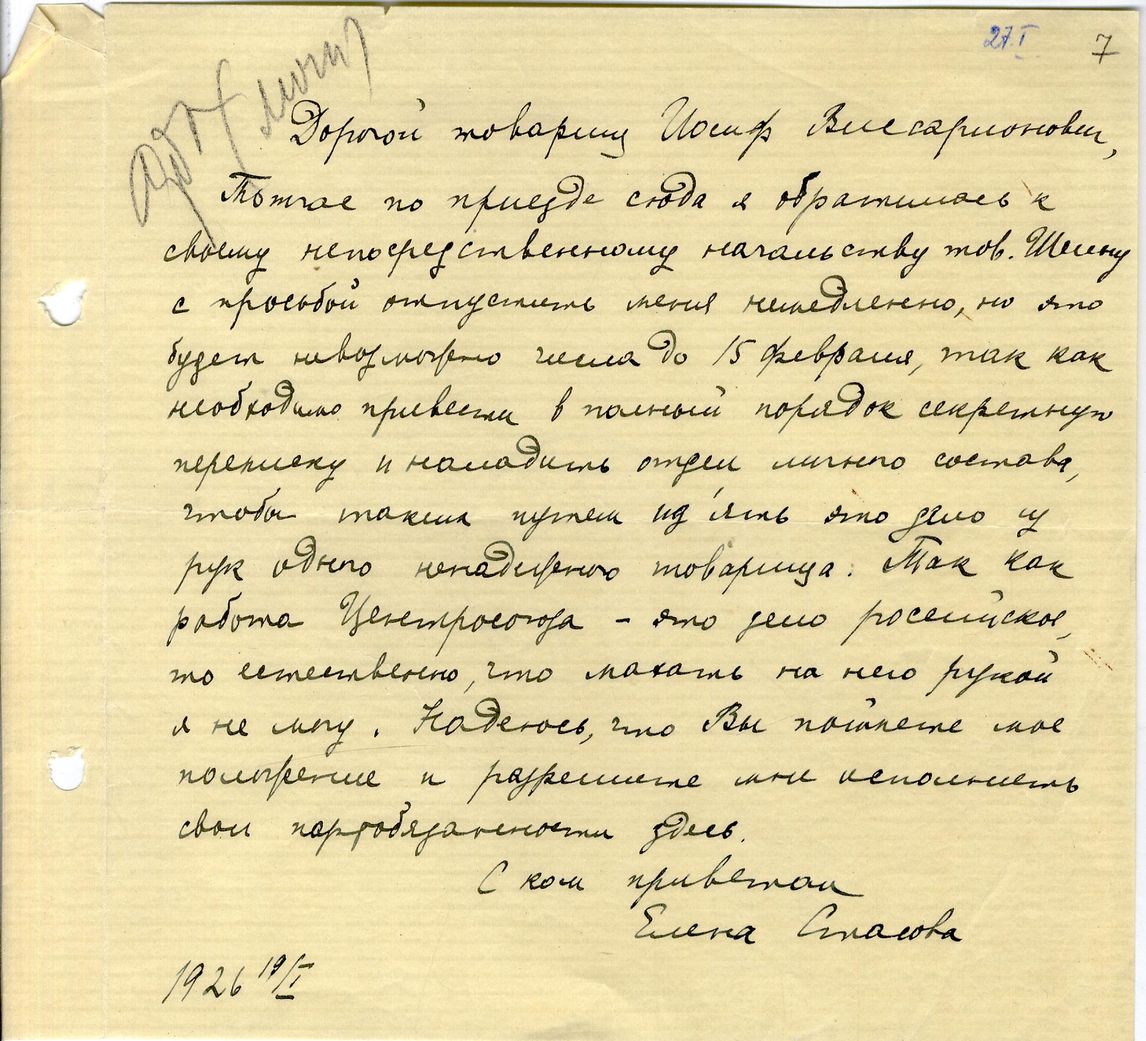 27.I 7
Дорогой товарищ Иосиф Виссарионович,
Тотчас по приезде сюда я обратилась к
своему непосредственному начальству тов.
с просьбой отпустить меня немедленно, но это
будет невозможно числа до 15 февраля, так как
необходимо привести в полный порядок секретную
переписку и наладить отдел личного состава,
чтобы таким путем из'ять это дело из
рук одного ненадежного товарища. Так как
работа Центросоюза – это дело российское,
то естественно, что махать на него рукой
я не могу. Надеюсь, что Вы поймете мое
положение и разрешите мне исполнить
свои партобязанности здесь.
С ком приветом
Елена Стасова
1926 19/I